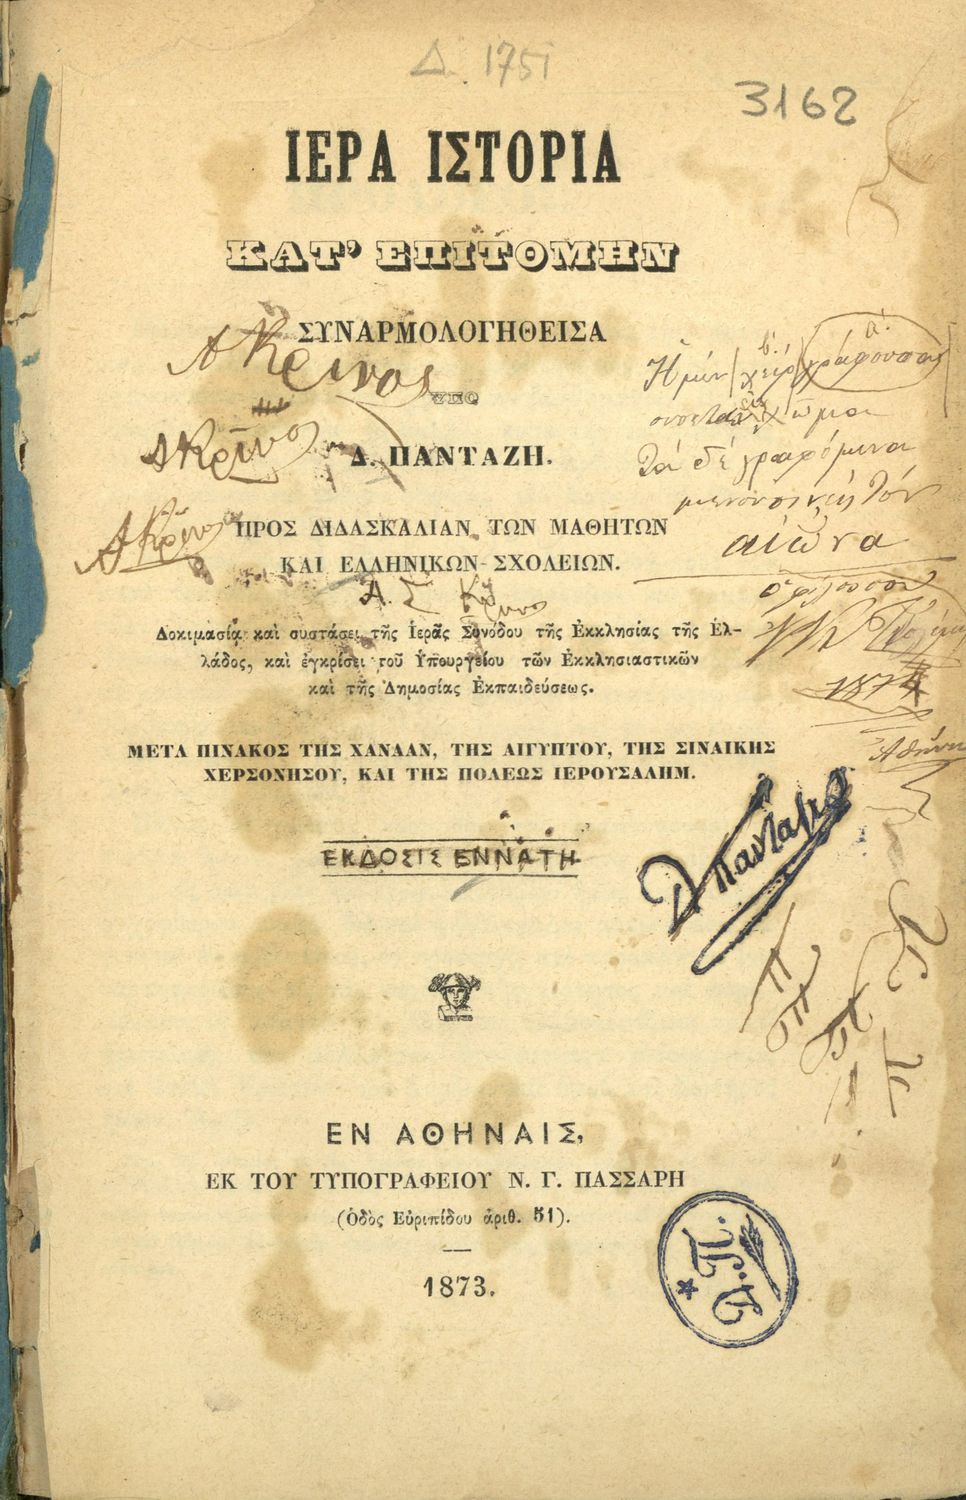 Δ. 1751
3162
ΙΕΡΑ ΙΣΤΟΡΙΑ
ΚΑΤ’ ΕΠΙΤΟΜΗΝ
ΣΥΝΑΡΜΟΛΟΓΗΘΕΙΣΑ
Α Κρινος
ΥΠΟ
Δ. ΠΑΝΤΑΖΗ.
ΠΡΟΣ ΔΙΔΑΣΚΑΛΙΑΝ ΤΩΝ ΜΑΘΗΤΩΝ
ΚΑΙ ΕΛΛΗΝΙΚΩΝ ΣΧΟΛΕΙΩΝ.
Α. Σ
Δοκιμασίᾳ καὶ συστάσει τῆς Ἱερᾶς Συνόδου τῆς Ἐκκλησίας τῆς Ἑλ-
λάδος, καὶ ἐγκρίσει τοῦ Ὑπουργείου τῶν Ἐκκλησιαστικῶν
καὶ τῆς Δημοσίας Ἐκπαιδεύσεως.
ΜΕΤΑ ΠΙΝΑΚΟΣ ΤΗΣ ΧΑΝΑΑΝ, ΤΗΣ ΑΙΓΥΠΤΟΥ, ΤΗΣ ΣΙΝΑΙΚΗΣ
ΧΕΡΣΟΝΗΣΟΥ, ΚΑΙ ΤΗΣ ΠΟΛΕΩΣ ΙΕΡΟΥΣΑΛΗΜ.
ΕΚΔΟΣΙΣ ΕΝΝΑΤΗ
Ἡ μὲν χεὶρ γράφουσα
β. α.
τὰ δὲ γραφόμενα
τὸν
αἰῶνα
Δ Πανταζῆς
ΕΝ ΑΘΗΝΑΙΣ,
ΕΚ ΤΟΥ ΤΥΠΟΓΡΑΦΕΙΟΥ Ν. Γ. ΠΑΣΣΑΡΗ
(Ὁδὸς Εὐριπίδου ἀριθ. 51).
1873.